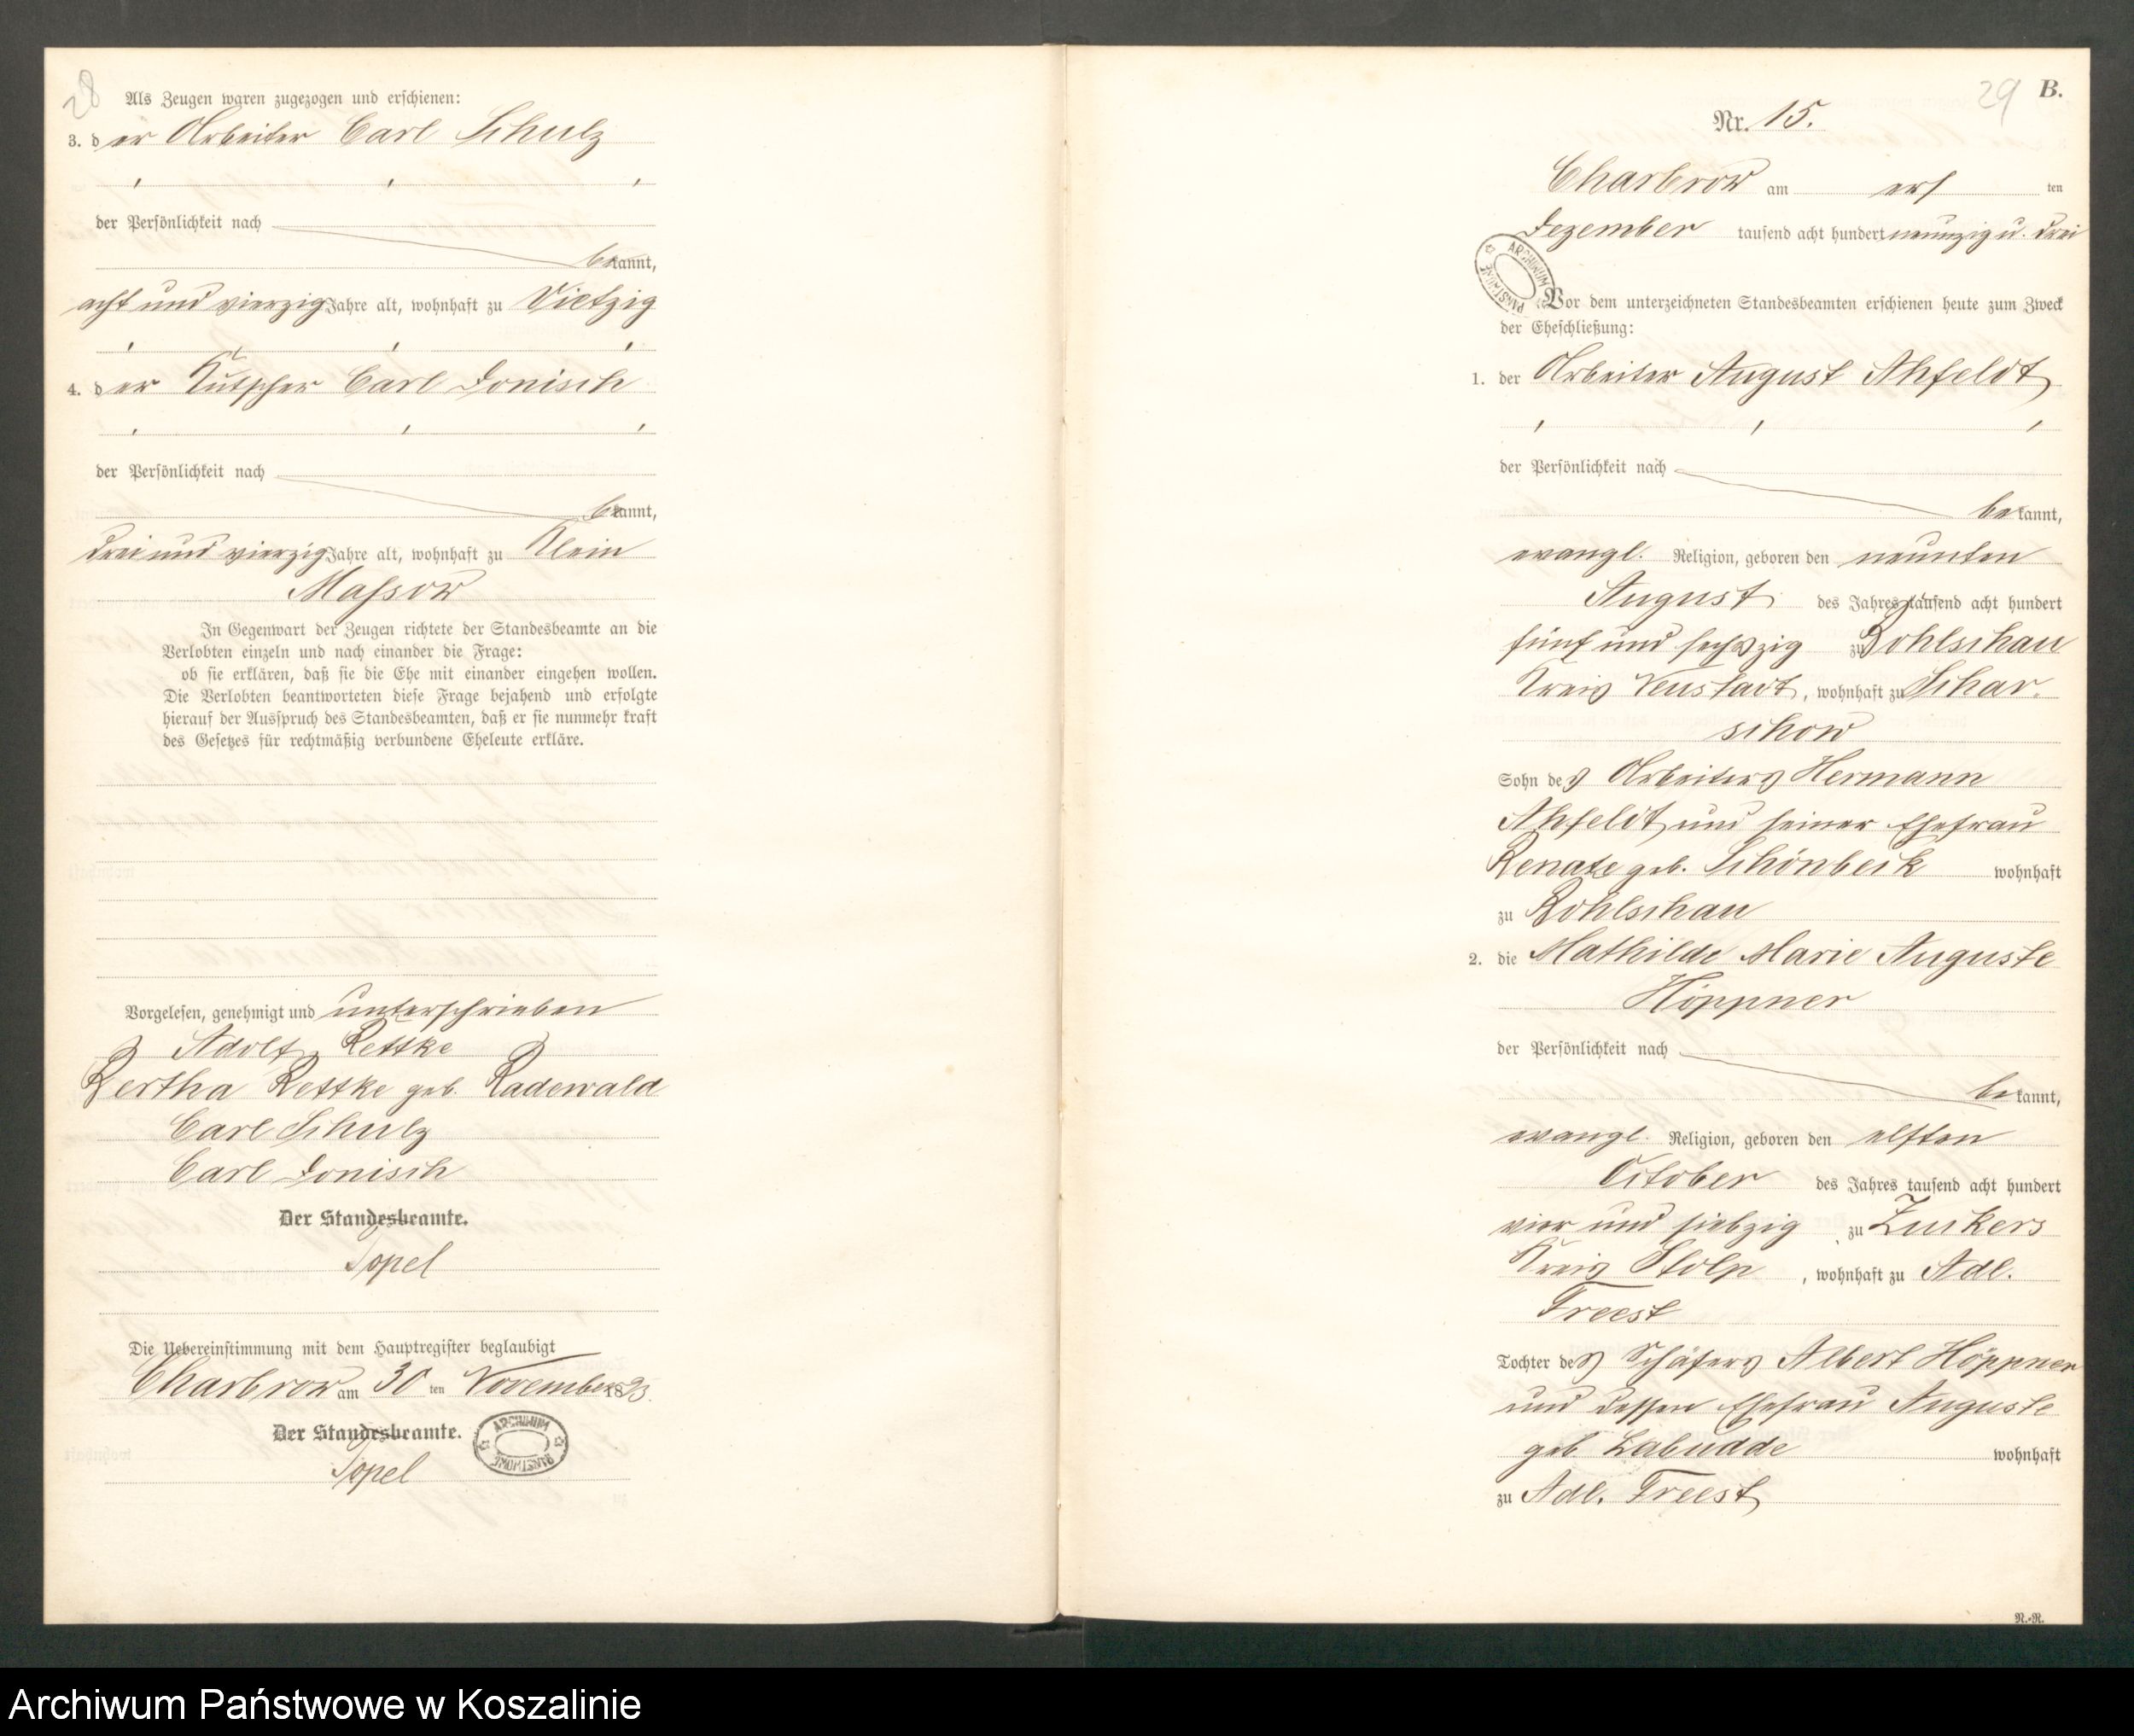 28
Als Zeugen waren zugezogen und erschienen:
3. der Arbeiter Carl Schulz
der Persönlichkeit nach
bekannt,
acht und vierzig Jahre alt, wohnhaft zu Vietzig
4. der Kutscher Carl Donisch
der Persönlichkeit nach
bekannt,
drei und vierzig Jahre alt, wohnhaft zu Klein
Massow
In Gegenwart der Zeugen richtete der Standesbeamte an die
Verlobten einzeln und nach einander die Frage:
ob sie erklären, daß sie die Ehe mit einander eingehen wollen.
Die Verlobten beantworteten diese Frage bejahend und erfolgte
hierauf der Ausspruch des Standesbeamten, daß er sie nunmehr kraft
des Gesetzes für rechtmäßig verbundene Eheleute erkläre.
Vorgelesen, genehmigt und unterschrieben
Adolf Rettke
Bertha Rettke geb. Radewald
Carl Schulz
Carl Donisch
Der Standesbeamte.
Topel
Die Uebereinstimmung mit dem Hauptregister beglaubigt
Charbrow am 30 ten November 1893.
Der Standesbeamte.
Topel
ARCHIWUM PAŃSTWOWE
29 B.
Nr. 15.
Charbrow am ersten
Dezember tausend acht hundert neunzig u. drei
ARCHIWUM PAŃSTWOWE
Vor dem unterzeichneten Standesbeamten erschienen heute zum Zweck
der Eheschließung:
1. der Arbeiter August Ahfeldt
der Persönlichkeit nach
bekannt,
evangl. Religion, geboren den neunten
August des Jahres tausend acht hundert
fünf und sechszig zu Bohlschau
Kreis Neustadt, wohnhaft zu Schar-
schow
Sohn des Arbeiters Hermann
Ahfeldt und seiner Ehefrau
Renate geb. Schönbeck wohnhaft
zu Bohlschau
2. die Mathilde Marie Auguste
Höppner
der Persönlichkeit nach
bekannt,
evangl. Religion, geboren den elften
October des Jahres tausend acht hundert
vier und siebzig zu Zuckers
Kreis Stolp, wohnhaft zu Adl.
Freest
Tochter des Schäfers Albert Höppner
und dessen Ehefrau Auguste
geb. Labudde wohnhaft
zu Adl. Freest
N.-R.
Archiwum Państwowe w Koszalinie